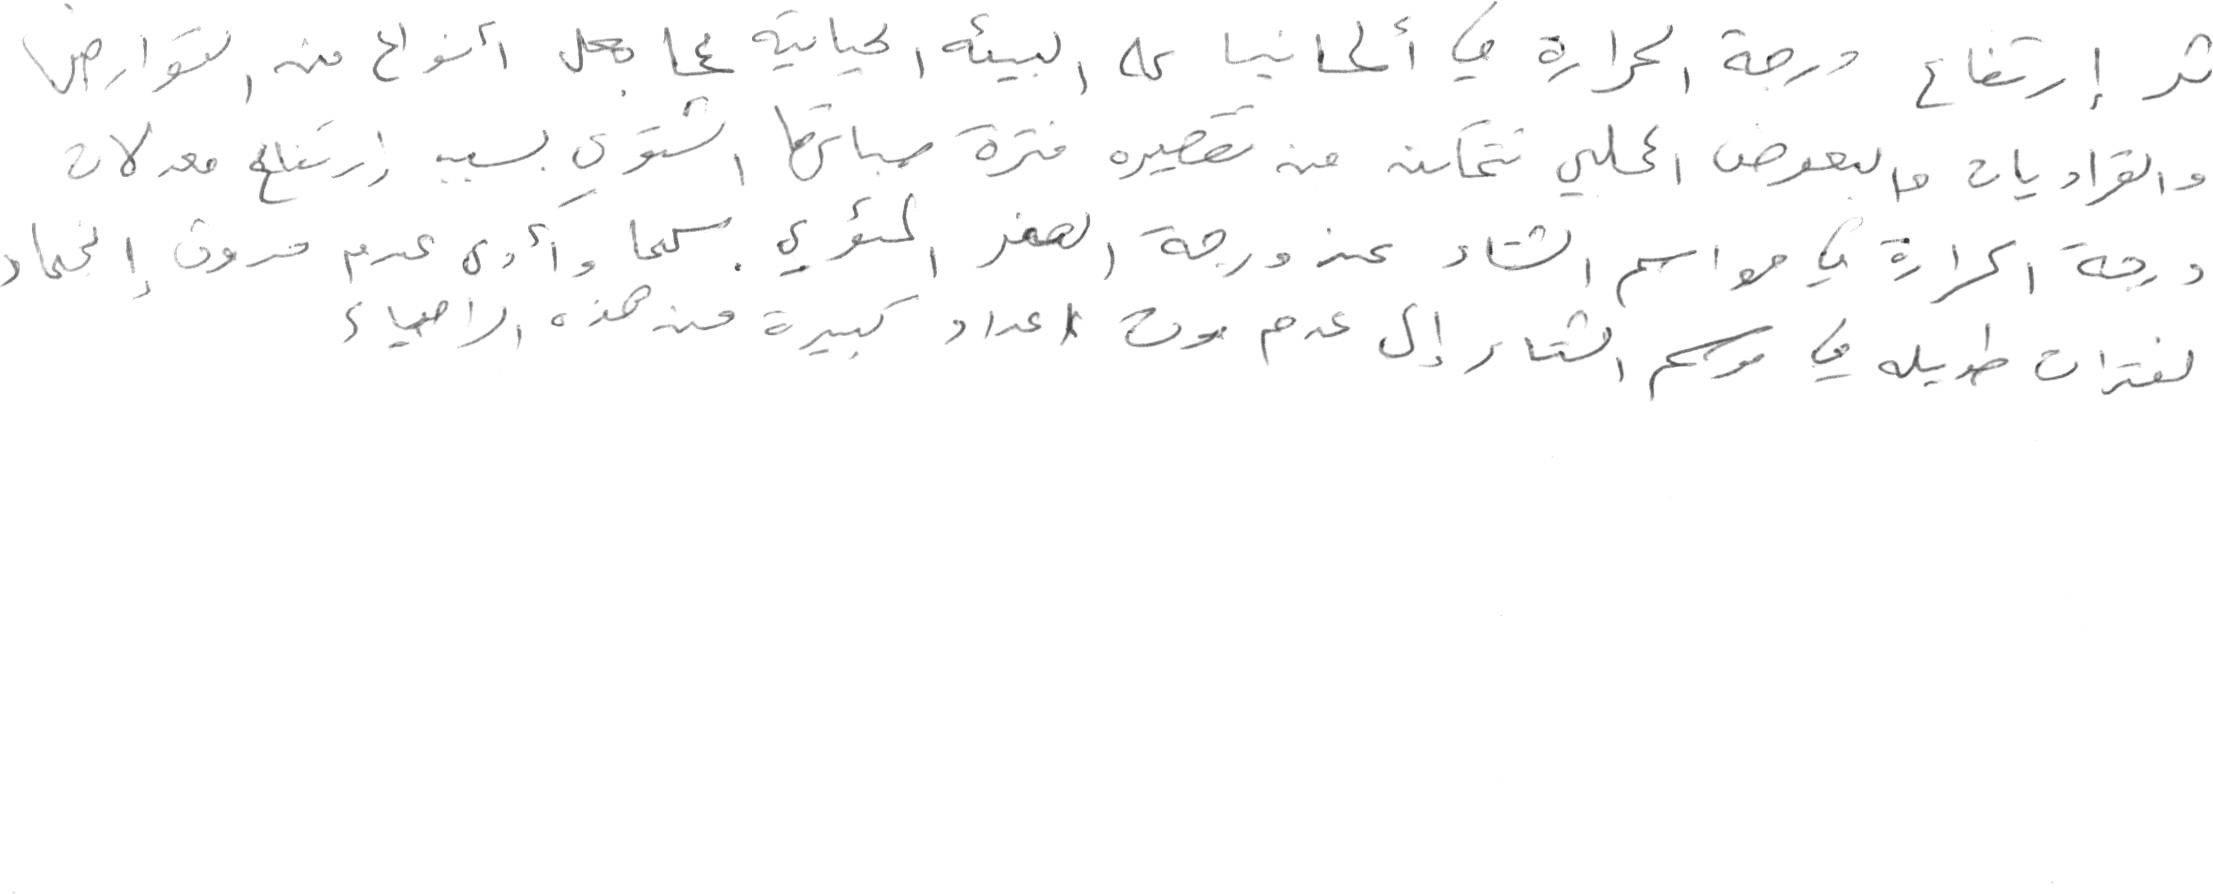 ثر إرتفاع درجة الحرارة في ألمانيا على البيئه الحياتية مما جعل أنواع من القوارض
والقراديات والبعوض المحلي تتمكن من تقصير فترة سباتها الشتوي بسبب إرتفاع معدلات
درجة الحرارة في مواسم الشتاء عند درجة الصفر المئوي. كما وأدى عدم حدوث إنجماد
لفترات طويله في موسم الشتاء إلى عدم موت اعداد كبيرة من هذه الاحياء